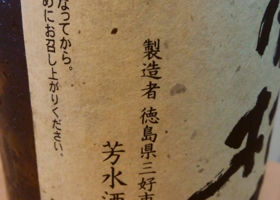 製造者 徳島県三好市
芳水酒
なってから。
めにお召し上がりください。